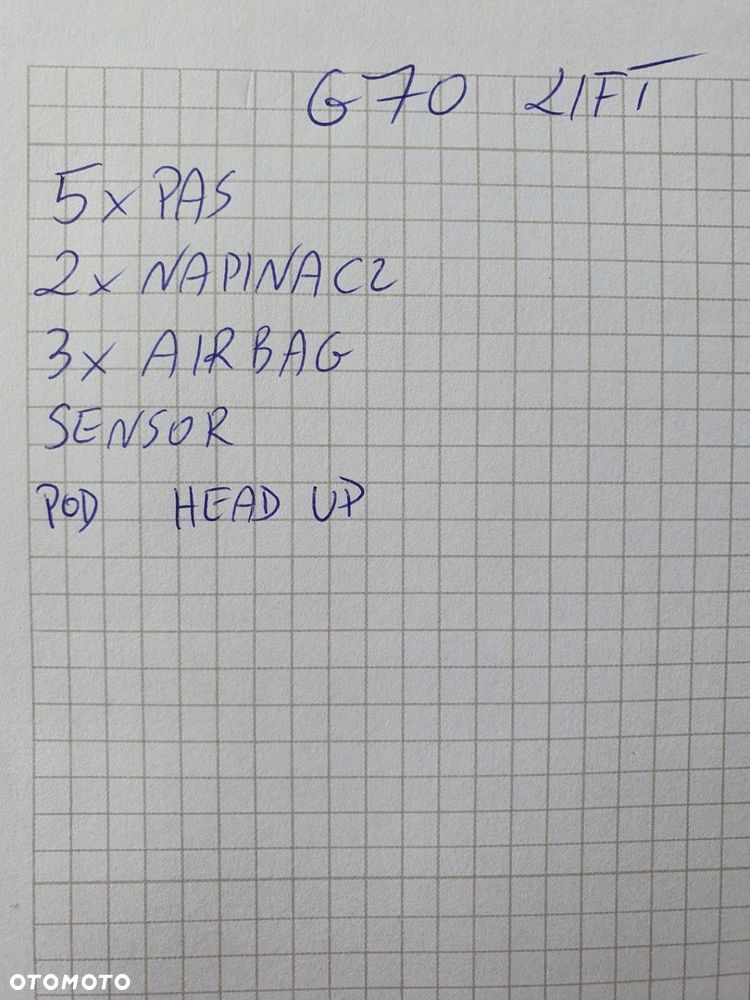 G70 LIFT
5x PAS
2x NAPINACZ
3x AIRBAG
SENSOR
POD HEAD UP
OTOMOTO